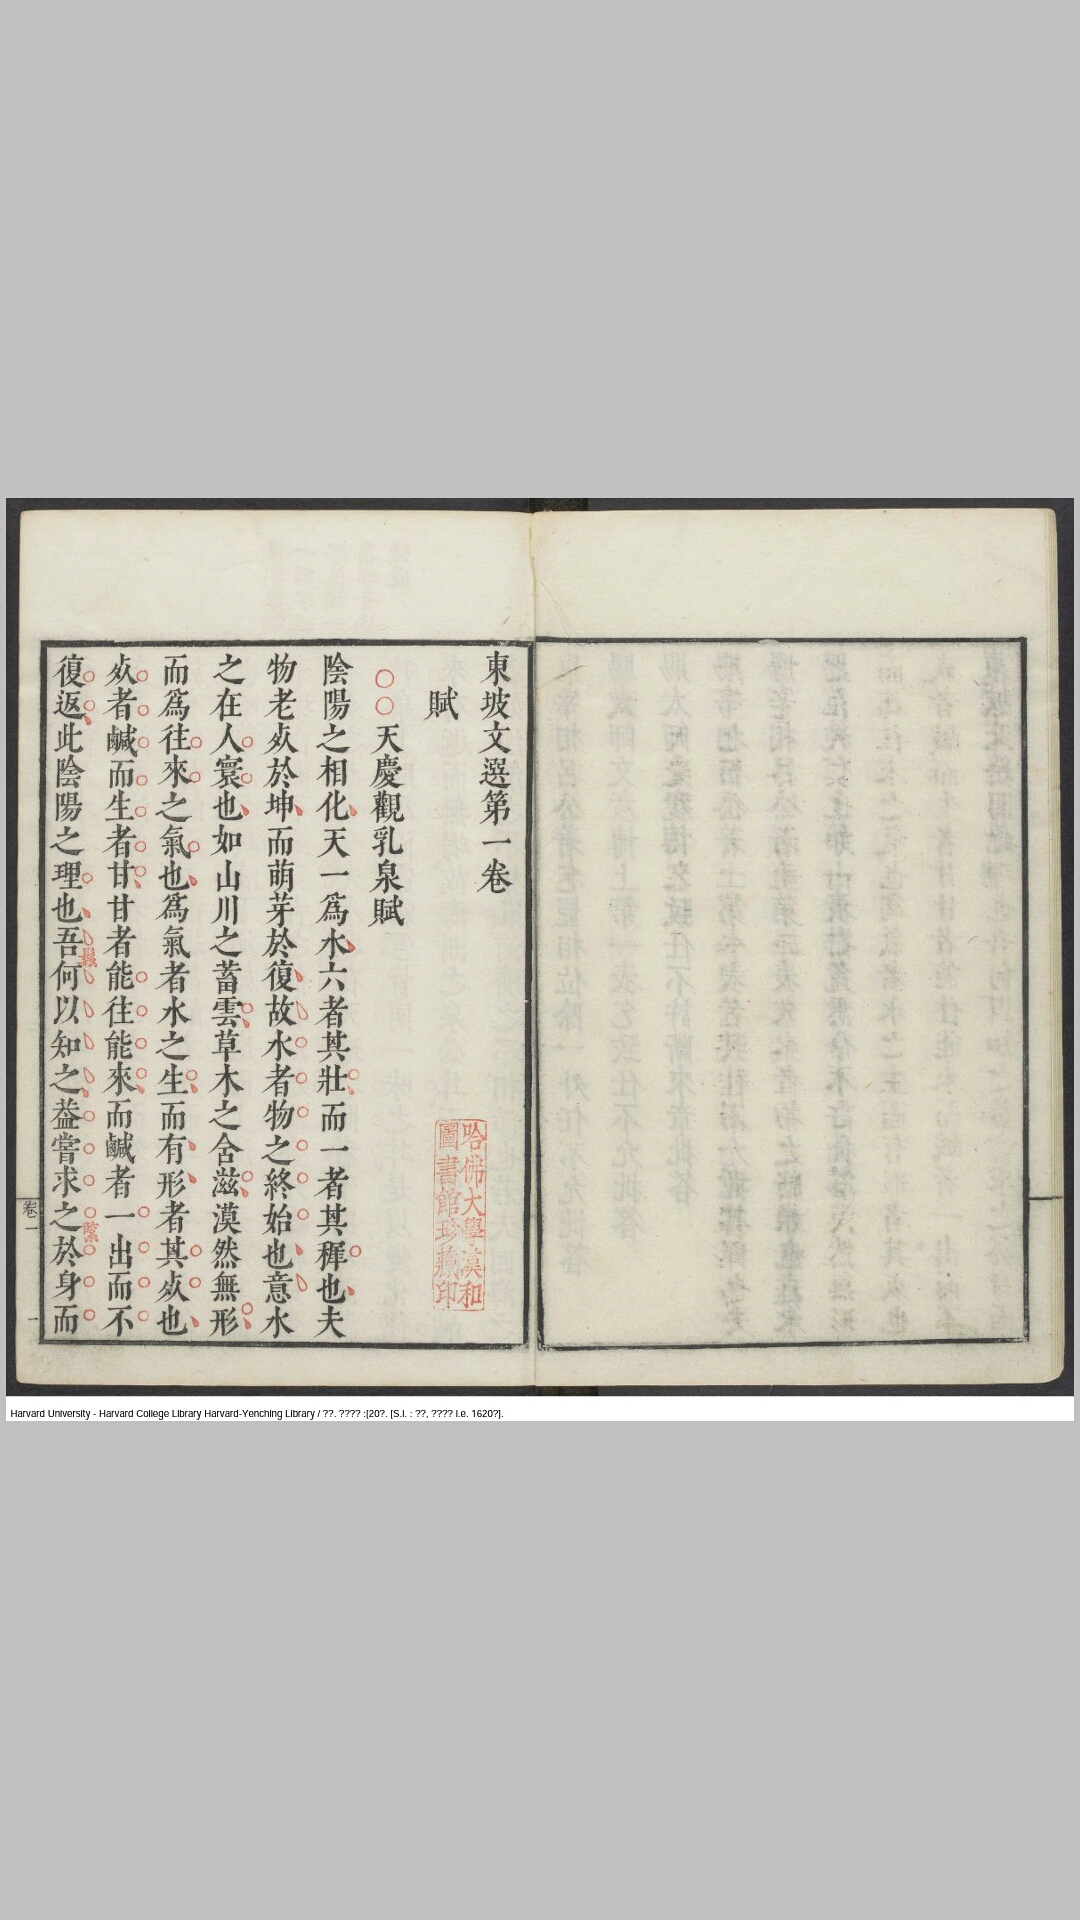 東坡文選第一卷
賦
天慶觀乳泉賦
陰陽之相化天一爲水六者其壯而一者其穉也夫
物老㱙於坤而萌芽於復故水者物之終始也意水
之在人寰也如山川之蓄雲草木之含滋漠然無形
而爲往來之氣也爲氣者水之生而有形者其㱙也
㱙者鹹而生者甘甘者能往能來而鹹者一出而不
復返此陰陽之理也吾何以知之葢嘗求之於身而
卷一
一
哈佛大學漢和
圖書館珍藏印
Harvard University - Harvard College Library Harvard-Yenching Library / ??. ???? :[20?. [S.l. : ??, ???? i.e. 1620?].